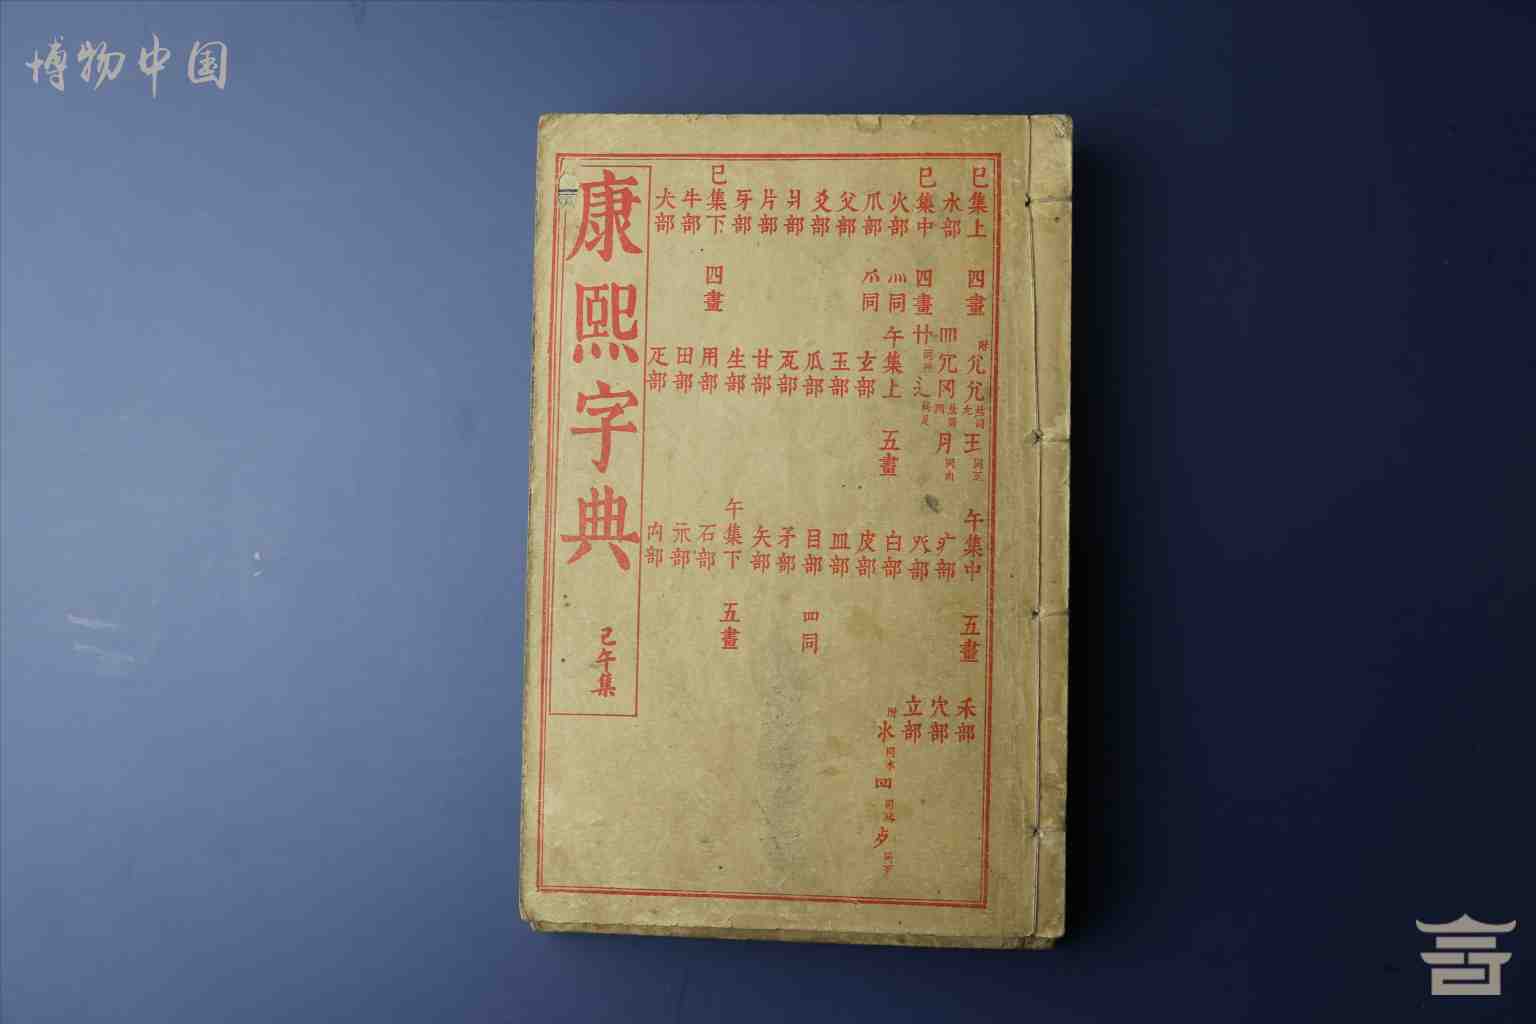 博物中国
康熙字典
巳午集
巳集上 四畫
水部
巳集中 四畫
火部 灬同
爪部 爫同
父部
爻部
爿部
片部
牙部
巳集下 四畫
牛部
犬部
附 王
罒 冗 冈 月
艹 辶
午集上 五畫
玄部
玉部
瓜部
瓦部
甘部
生部
用部
田部
疋部
午集中 五畫
疒部
癶部
白部
皮部
皿部
目部 罒同
矛部
矢部
午集下 五畫
石部
示部
禸部
禾部
穴部
立部
附 氺 同水 歹 同歹